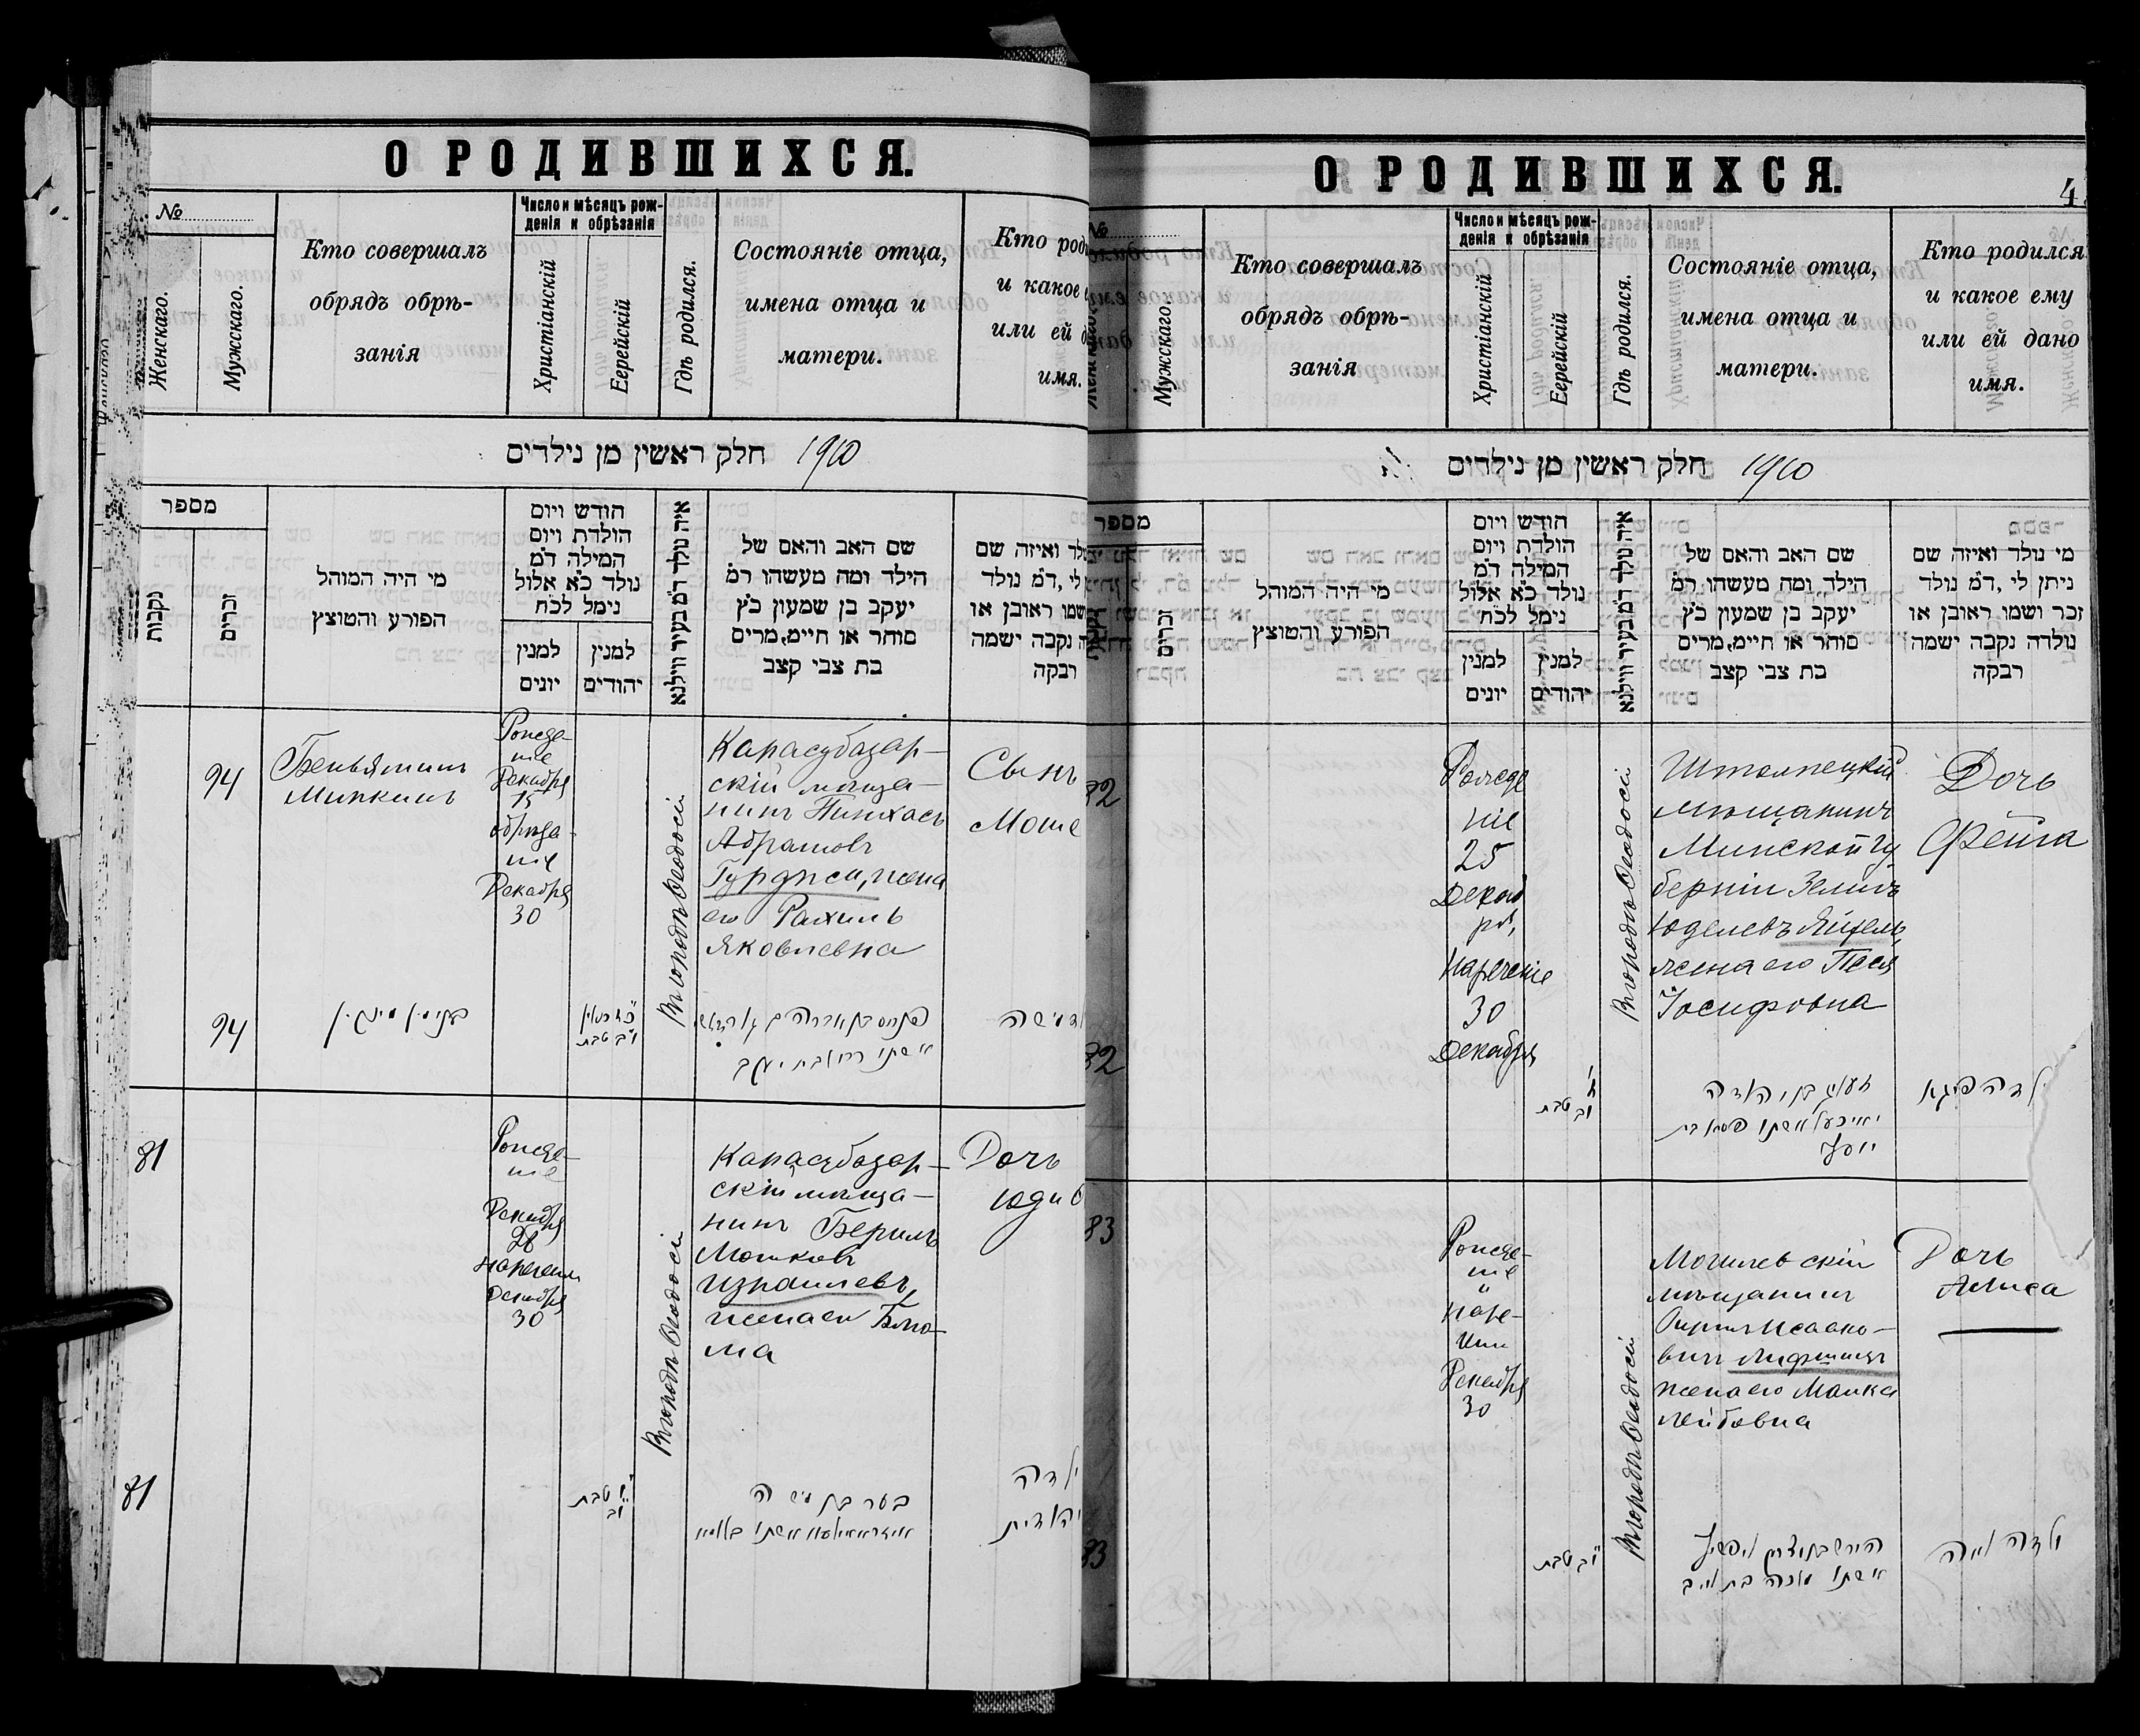 О РОДИВШИХСЯ.
№
Женскаго.
Мужскаго.
Кто совершалъ
обрядъ обрѣ-
занія
Число и мѣсяцъ рож-
денія и обрѣзанія
Христіанскій
Еерейскій
Гдѣ родился.
Состояніе отца,
имена отца и
матери.
Кто
и какое
или ей
имя.
חלק ראשין מן נילדים 1910
מספר
נקבות
זכרים
מי היה המוהל
הפורע והטוצץ
חודש ויום
הולדת ויום
המילה ד״מ
נולד כ״א אלול
נימל לכ״ח
למנין
יונים
למנין
יהודים
איה נולד ד״מ בעיר ווילנא
שם האב והאם של
הילד ומה מעשהו ר״מ
יעקב בן שמעון כ״ץ
סוחר או חיים, מרים
בת צבי קצב
ואיזה שם
לי, ד״מ נולד
ושמו ראובן או
נקבה ישמה
רבקה
94
Беньяминъ
Минкинъ
Рожде-
ніе
Декабря
15
обрѣза-
ніе
Декабря
30
Въ городѣ Ѳеодосіи
Карасубазар-
скій мѣща-
нинъ Пинхасъ
Абрамовъ
Гурджи, жена
его Рахиль
Яковлевна
Сынъ
Моше
94
בנימין מינקין
י״ב טבת
אשתו רחל בת יעקב
משה
81
Рожде-
ніе
Декабря
26
нареченіе
Декабря
30
Въ городѣ Ѳеодосіи
Карасубазар-
скій мѣща-
нинъ Берилъ
Мошковъ
Израилевъ,
жена его Блю-
ма
Дочь
Юди
81
טבת
י״ב
בער בן משה
אשתו בלומא
ילדה
יהודית
О РОДИВШИХСЯ.
4
№
Мужскаго.
Кто совершалъ
обрядъ обрѣ-
занія
Число и мѣсяцъ рож-
денія и обрѣзанія
Христіанскій
Еерейскій
Гдѣ родился.
Состояніе отца,
имена отца и
матери.
Кто родился
и какое ему
или ей дано
имя.
חלק ראשין מן נילדים 1910
מספר
זכרים
מי היה המוהל
הפורע והטוצץ
חודש ויום
הולדת ויום
המילה ד״מ
נולד כ״א אלול
נימל לכ״ח
למנין
יונים
למנין
יהודים
איה נולד ד״מ בעיר ווילנא
שם האב והאם של
הילד ומה מעשהו ר״מ
יעקב בן שמעון כ״ץ
סוחר או חיים, מרים
בת צבי קצב
מי נולד ואיזה שם
ניתן לי, ד״מ נולד
זכר ושמו ראובן או
נולדה נקבה ישמה
רבקה
82
Рожде
ніе
25
Декаб
ря,
Нареченіе
30
Декабря
Въ городѣ Ѳеодосіи
Штолпецкій
мѣщанинъ
Минской гу
берніи Зеликъ
Юделевъ
жена его Песя
Іосифовна
Дочь
Фейга
82
י״ב טבת
זעליג בן יהודה
אשתו פעסא בת
יוסף
ילדה פיגא
83
Рожде-
ніе
и
наре-
ченіе
Декабря
30
Въ городѣ Ѳеодосіи
Могилевскій
мѣщанинъ
Гиршъ Исаако-
вичъ Лифшицъ
жена его Малка
Лейбовна
Дочь
83
י״ב טבת
הירש בן יצחק ליפשיץ
אשתו מלכה בת לייב
ילדה